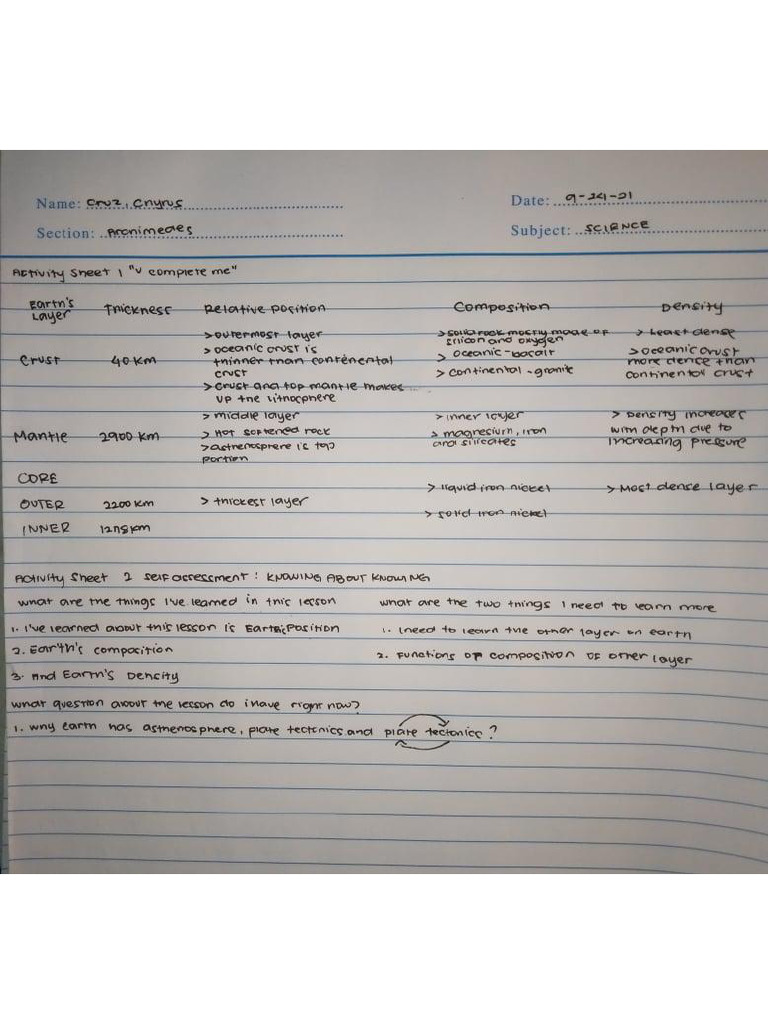 Name: Cruz, Chyrus
Date: 9-24-21
Section: Archimedes
Subject: SCIENCE
Activity Sheet 1 "U complete me"
Earth's Layer Thickness Relative Position Composition Density
>outermost layer >solid rock mostly made of silicon and oxygen > Least dense
Crust 40 km > oceanic crust is thinner than contenental crust > oceanic - basalt >oceanic crust more dense than continental crust
> continental - granite
> Crust and top mantle makes up the lithosphere
> middle layer > inner layer > Density increases with depth due to increasing pressure
Mantle 2900 km > Hot softened rock > magnesium, iron and silicates
>asthenosphere is top portion
CORE
> liquid iron nickel > Most dense layer
OUTER 2200 km > thickest layer
> solid iron nickel
INNER 1275 km
Activity Sheet 2 self assessment : KNOWING ABOUT KNOWING
what are the things I've learned in this lesson what are the two things I need to learn more
1. I've learned about this lesson is Earth's Position 1. I need to learn the other layer on earth
2. Earth's composition 2. Functions of composition of other layer
3. And Earth's Dencity
what question about the lesson do i have right now?
1. why earth has asthenosphere, plate tectonics and plate tectonics ?